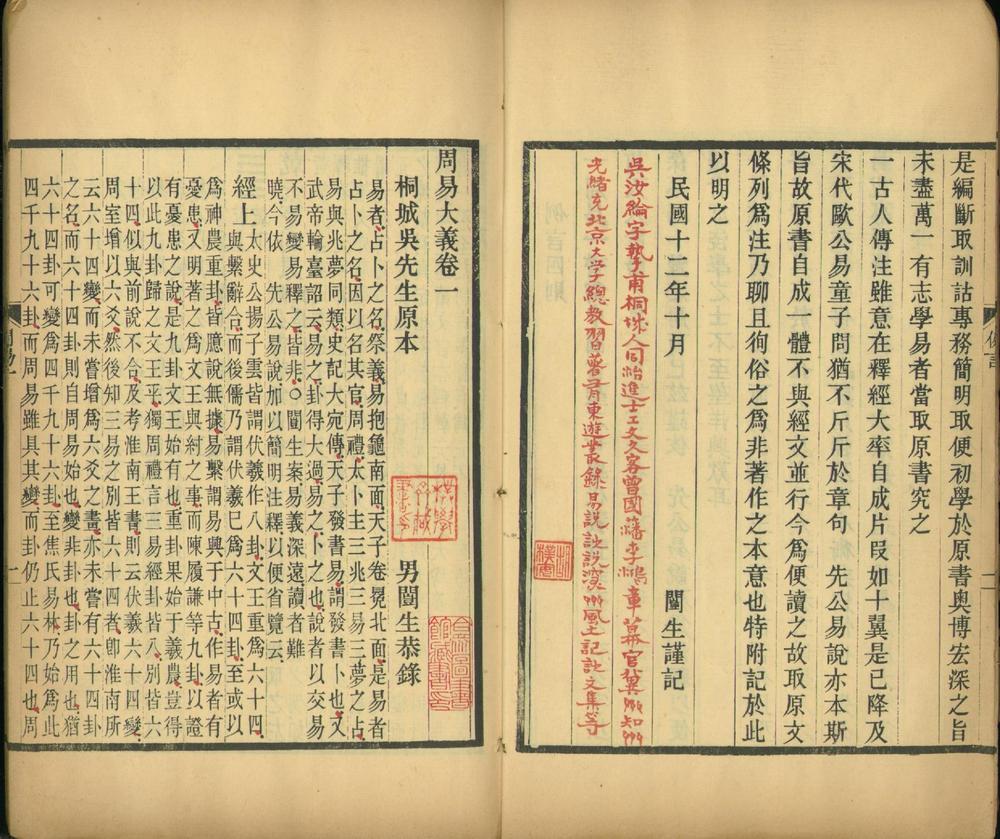 是編斷取訓詁專務簡明取便初學於原書奧博宏深之旨
未盡萬一有志學易者當取原書究之
一古人傳注雖意在釋經大率自成片段如十翼是已降及
宋代歐公易童子問猶不斤斤於章句 先公易說亦本斯
旨故原書自成一體不與經文並行今為便讀之故取原文
條列爲注乃聊且徇俗之爲非著作之本意也特附記於此
以明之
民國十二年十月 闓生謹記
吳汝綸字摯甫桐城人同治進士工文久客曾國藩李鴻章幕官冀州知州
光緒充北京大学總教習著有東遊叢錄易説詩説深州風土記詩文集等
二
周易大義卷一
桐城吳先生原本 男闓生恭錄
易者占卜之名祭義易抱龜南面天子卷冕北面是易者
占卜之名因以名其官周禮太卜主三兆三易三夢之占
易與兆夢同類史記大宛傳天子發書易謂發書卜也又
武帝輪臺詔云易之卦得大過易之卜之也說者以交易
不易變易釋之皆非○闓生案易義深遠讀者難
曉今依 先公易說加以簡明注釋以便省覽云
經上太史公揚子雲皆謂伏羲作八卦文王重爲六十四
與繫辭合而後儒乃謂伏羲已爲六十四卦至或以
爲神農重卦皆臆說無據易繫謂易興于中古作易者有
憂患又明著之爲文王與紂之事而陳履謙等九卦以證
有憂患之說是九卦文王始有也重卦果始于羲農豈得
以此九卦歸之文王乎獨周禮言三易經卦皆八別皆六
十四似與前說不合及考淮南王書則云伏羲六十四變
周室增以六爻然後知三易之別皆六十四者卽淮南所
云六十四變而未嘗增爲六爻之畫亦未嘗有六十四卦
之名而六十四卦則自周易始也變非卦也卦之用也猶
六十四卦可變爲四千九十六卦至焦氏易林乃始爲此
四千九十六卦而周易雖具其變而卦仍止六十四也周
一